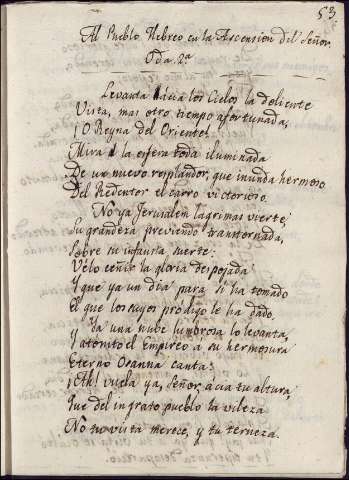 53.
Al Pueblo Hebreo en la Ascension del Señor.
Oda 2.a
Levanta ácia los Cielos la doliente
Vista, mas otro tiempo afortunada,
¡O Reyna del Oriente!
Mira la esfera toda iluminada
De un nuevo resplandor, que inunda hermoso
Del Redentor el carro victorioso.
No ya Jerusalem lagrimas vierte,
Su grandeza previendo transtornada,
Sobre su infausta suerte:
Vélo ceñir la gloria despojada
Y que ya un dia para sí ha tomado
El que los suyos pródigo le ha dado.
Ya una nube lumbrosa lo levanta,
Y atonito el Empireo a su hermosura
Eterno Osanna canta:
¡Ah! vuela ya, Señor, ácia tu altura,
Que del ingrato pueblo la vileza
No tu vista merece, y tu terneza.